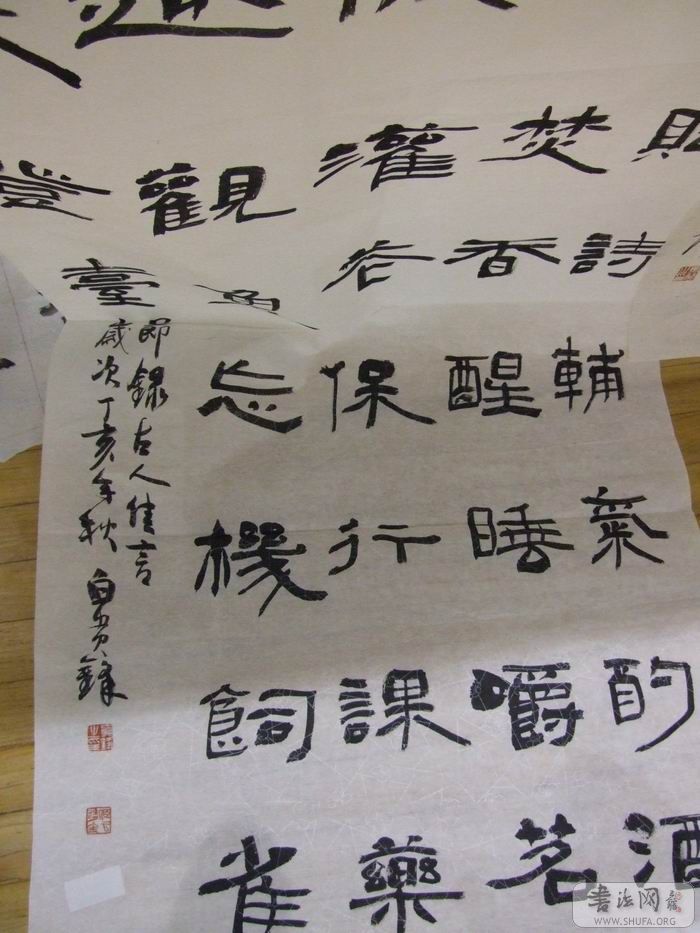 詩
焚香
灌花
觀魚
登臺
輔氣酌酒
醒睡嚼茗
保行課藥
忘機飼雀
節録古人佳言
歲次丁亥年秋 白 鋒
書法网
WWW.SHUFA.ORG